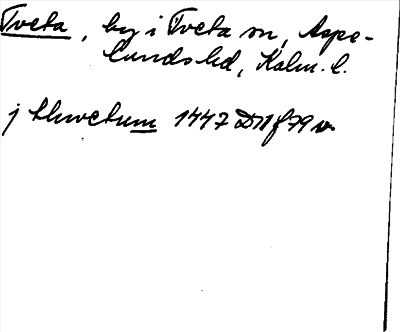 Tveta, by i Tveta sn, Aspe-
lunds hd, Kalm. l.
j thwetum 1447 DN f 79 v.